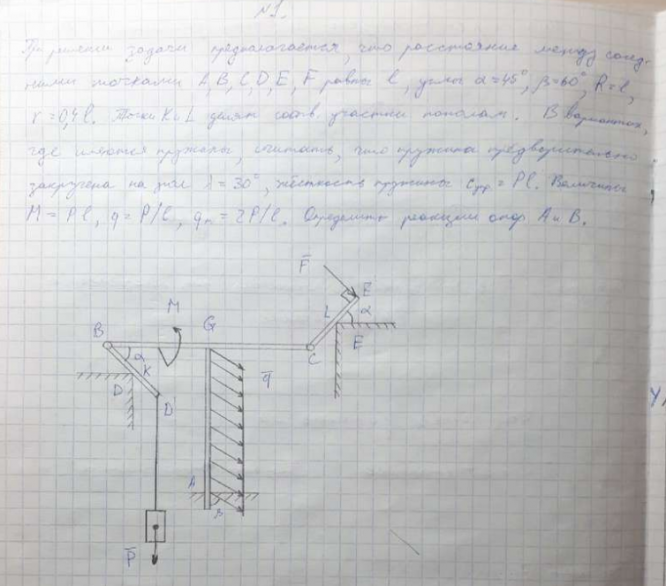 N1.
При решении задачи предполагается, что расстояние между сосед-
ними точками A, B, C, D, E, F равны l, углы α=45°, β=60°, R=l,
r=0,4l. Точки K и L делят соотв. участки пополам. В вариантах,
где имеются пружины, считать, что пружина предварительно
закручена на угол λ=30°, жёсткость пружины Cпр=Pl. Величины
M=Pl, q=P/l, qm=2P/l. Определить реакции опор A и B.
F
E
M
B
G
L
α
C
E
α
K
D
D
q
A
β
P